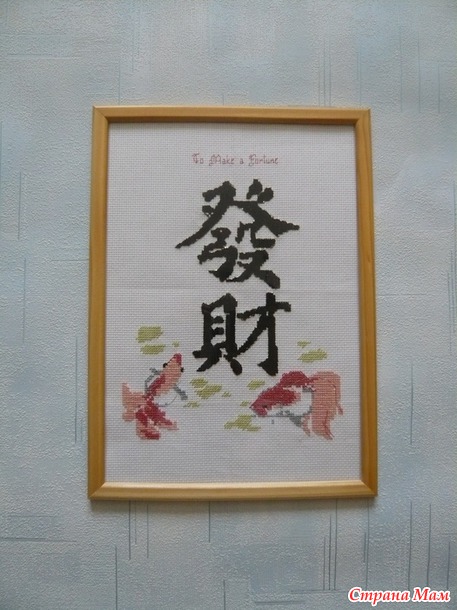 To Make a Fortune
發
財
Страна Мам